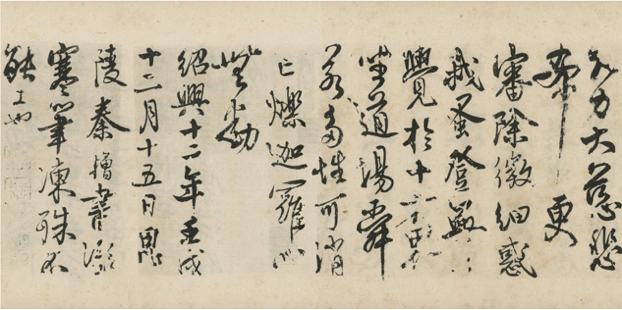 力大慈悲
希更
審除微細惑
我蚤登無上
覺於十方界
坐道場舜
若多性可消
亡爍迦羅心
動
紹興十二年壬戌
十二月十五日
陵秦書
寒筆凍殊不
能工也